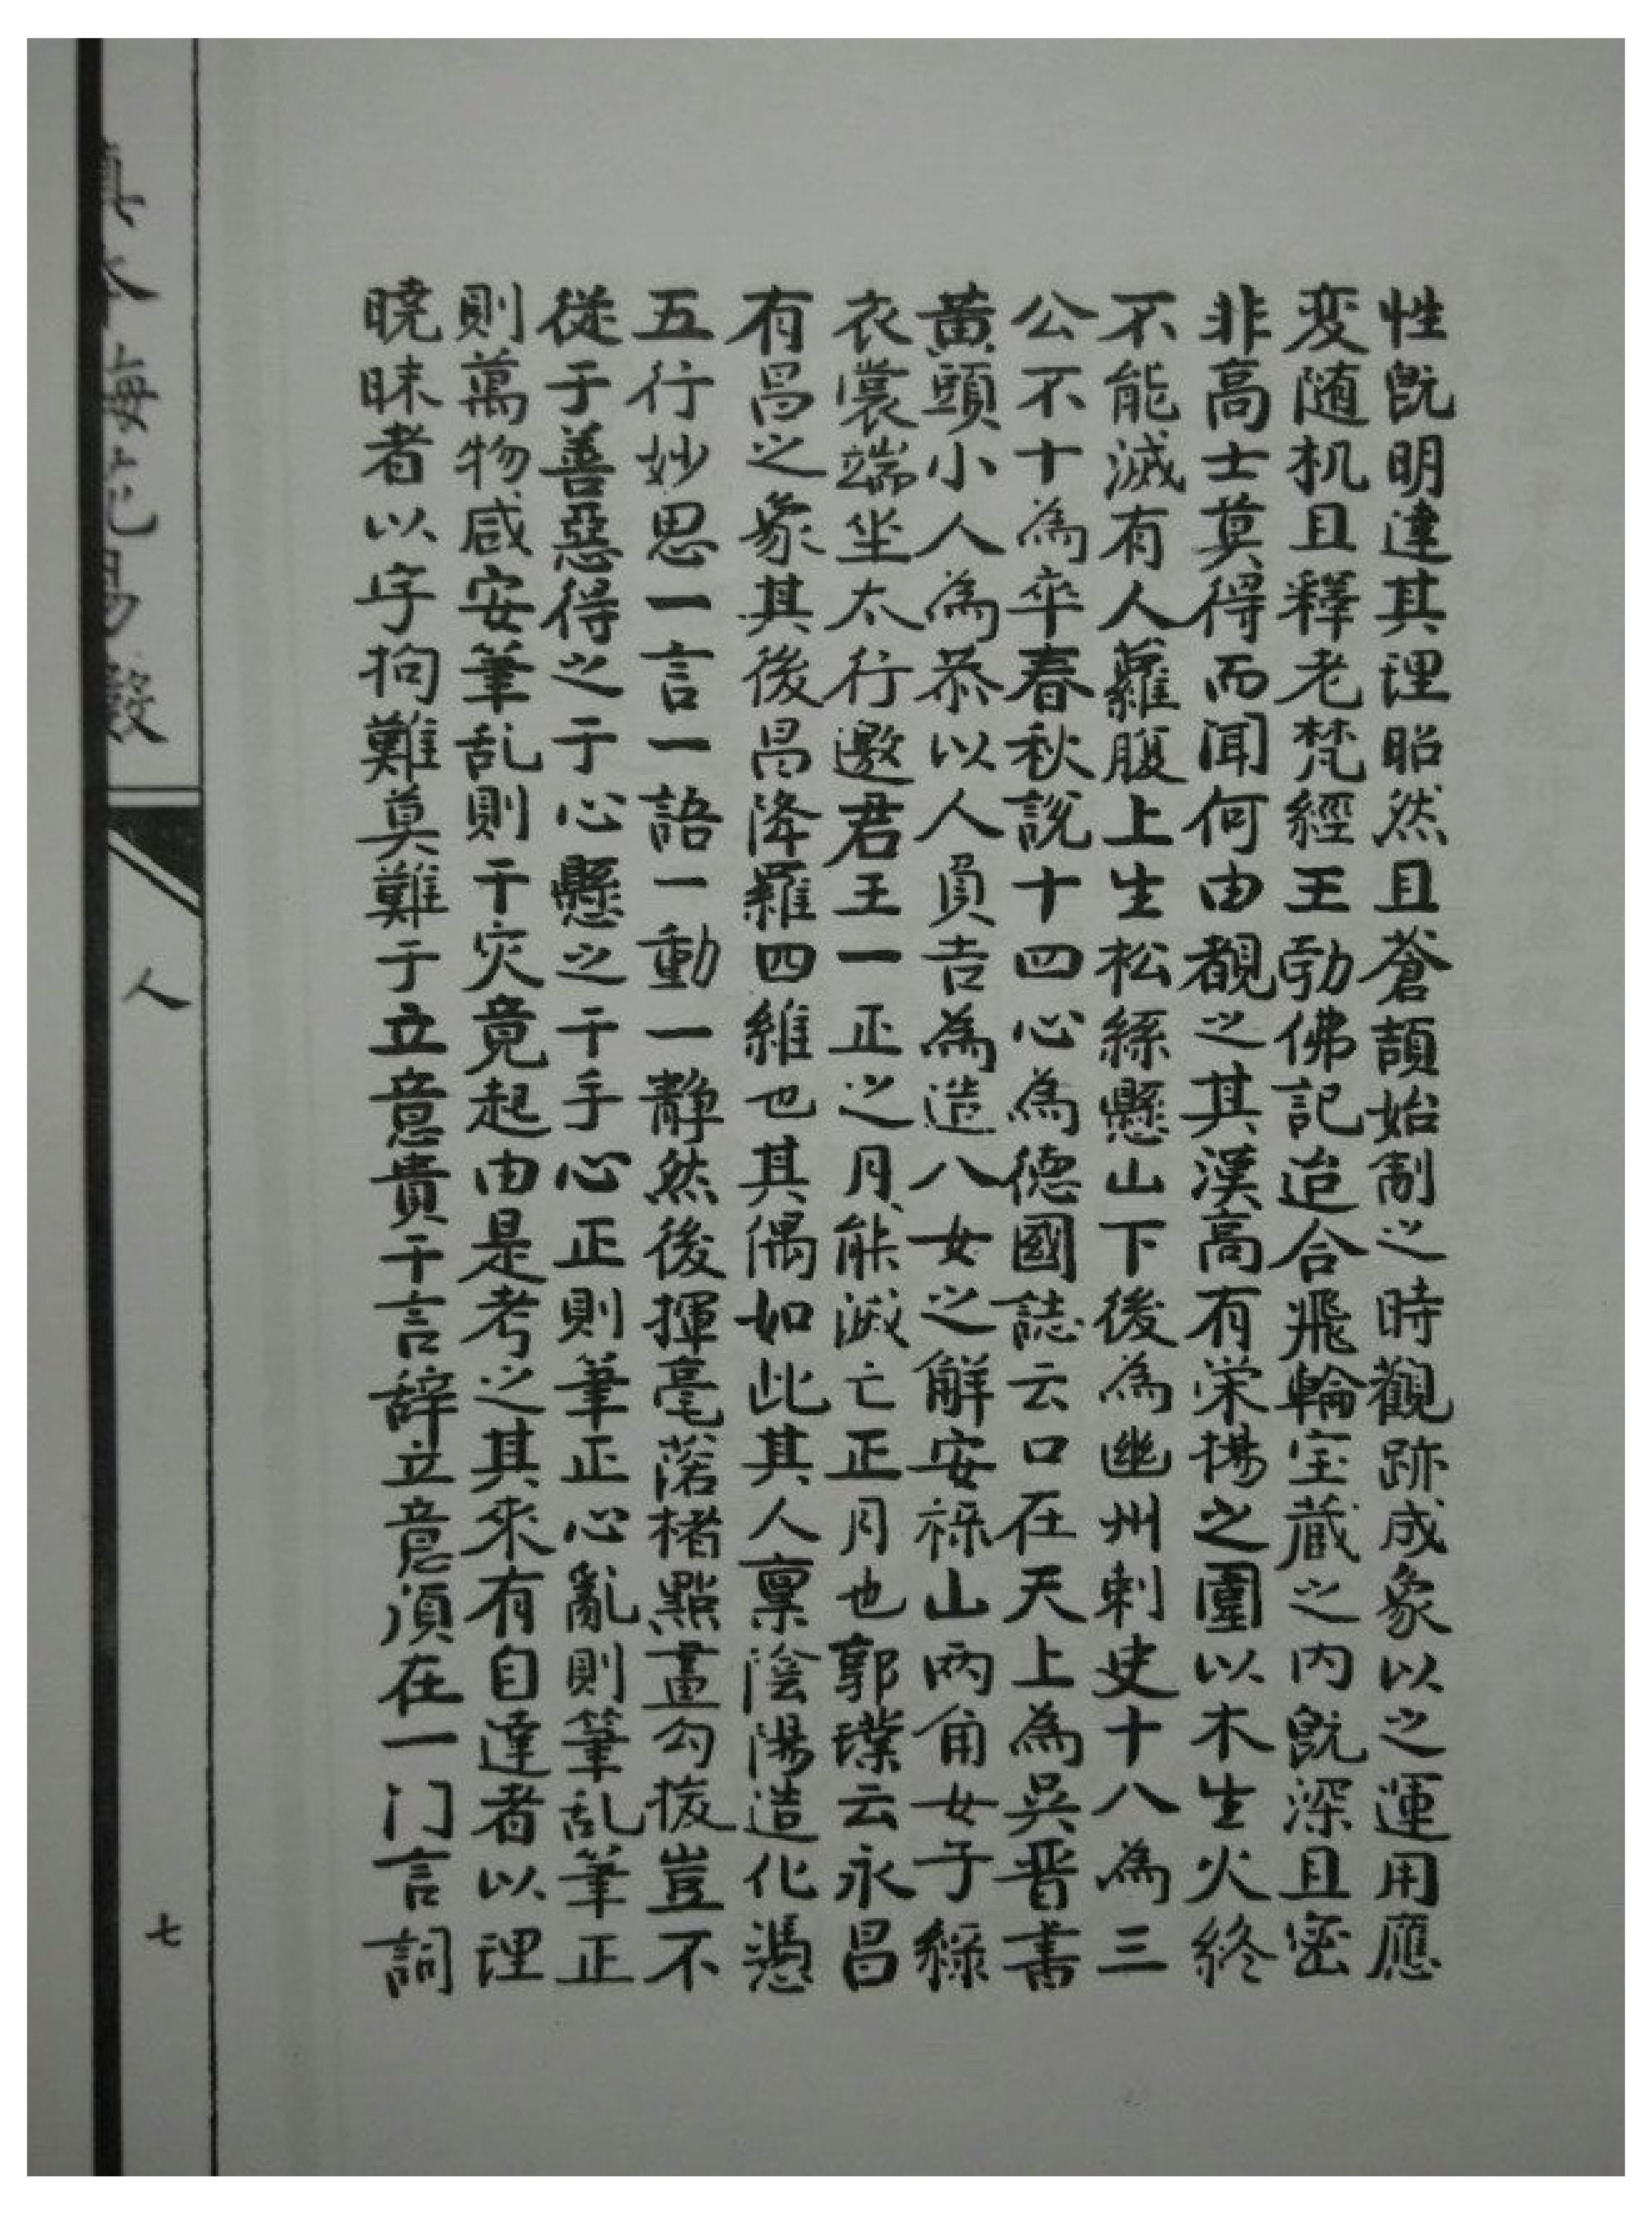 性既明達其理昭然且蒼頡始制之時觀跡成象以之運用應
变随机且釋老梵經王勃佛記迨合飛輪宝蔵之内既深且密
非高士莫得而闻何由覩之其漢高有栄揚之圍以木生火終
不能滅有人蘿腹上生松絲懸山下後為幽州刺史十八為三
公不十為卒春秋說十四心為德國誌云口在天上為吳晋書
黄頭小人為恭以人負吉為造八女之解安祿山兩角女子綠
衣裳端坐太行邀君王一正之月能滅亡正月也郭璞云永昌
有昌之象其後昌降羅四維也其偶如此其人稟陰陽造化憑
五行妙思一言一語一動一静然後揮毫落楮點畫勾拔豈不
從于善惡得之于心懸之于手心正則筆正心亂則筆乱筆正
則萬物咸安筆乱則千灾竟起由是考之其來有自達者以理
暁昧者以字拘難莫難于立意貴千言辞立意須在一门言詞
梅花易數
人
七